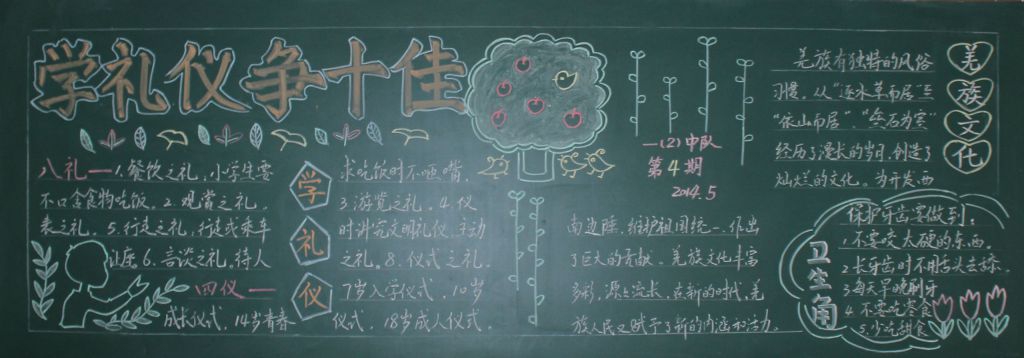 学礼仪争十佳
八礼一1.餐饮之礼,小学生要
不口含食物吃饭。2.观赏之礼。
表之礼。5.行走之礼,行走或乘车
让座6.言谈之礼。待人
四仪一
成长仪式,14岁青春
学礼仪
求吃饭时不咂嘴,
3.游览之礼。4.仪
时讲究文明礼仪,主动
之礼。8.仪式之礼。
7岁入学仪式,10岁
仪式,18岁成人仪式。
一(2)中队
第4期
2014.5
羌族文化
羌族有独特的风俗
习惯。从“逐水草而居”至
“依山而居”、“垒石为室”
经历了漫长的岁月,创造了
灿烂的文化。为开发西
南边陲,维护祖国统一,作出
了巨大的贡献。羌族文化丰富
多彩,源远流长,在新的时代,羌
族人民又赋予了新的内涵和活力。
卫生角
保护牙齿要做到。
1.不要咬太硬的东西。
2.长牙齿时不用舌头去舔。
3.每天早晚刷牙
4.不要吃零食
5.少吃甜食